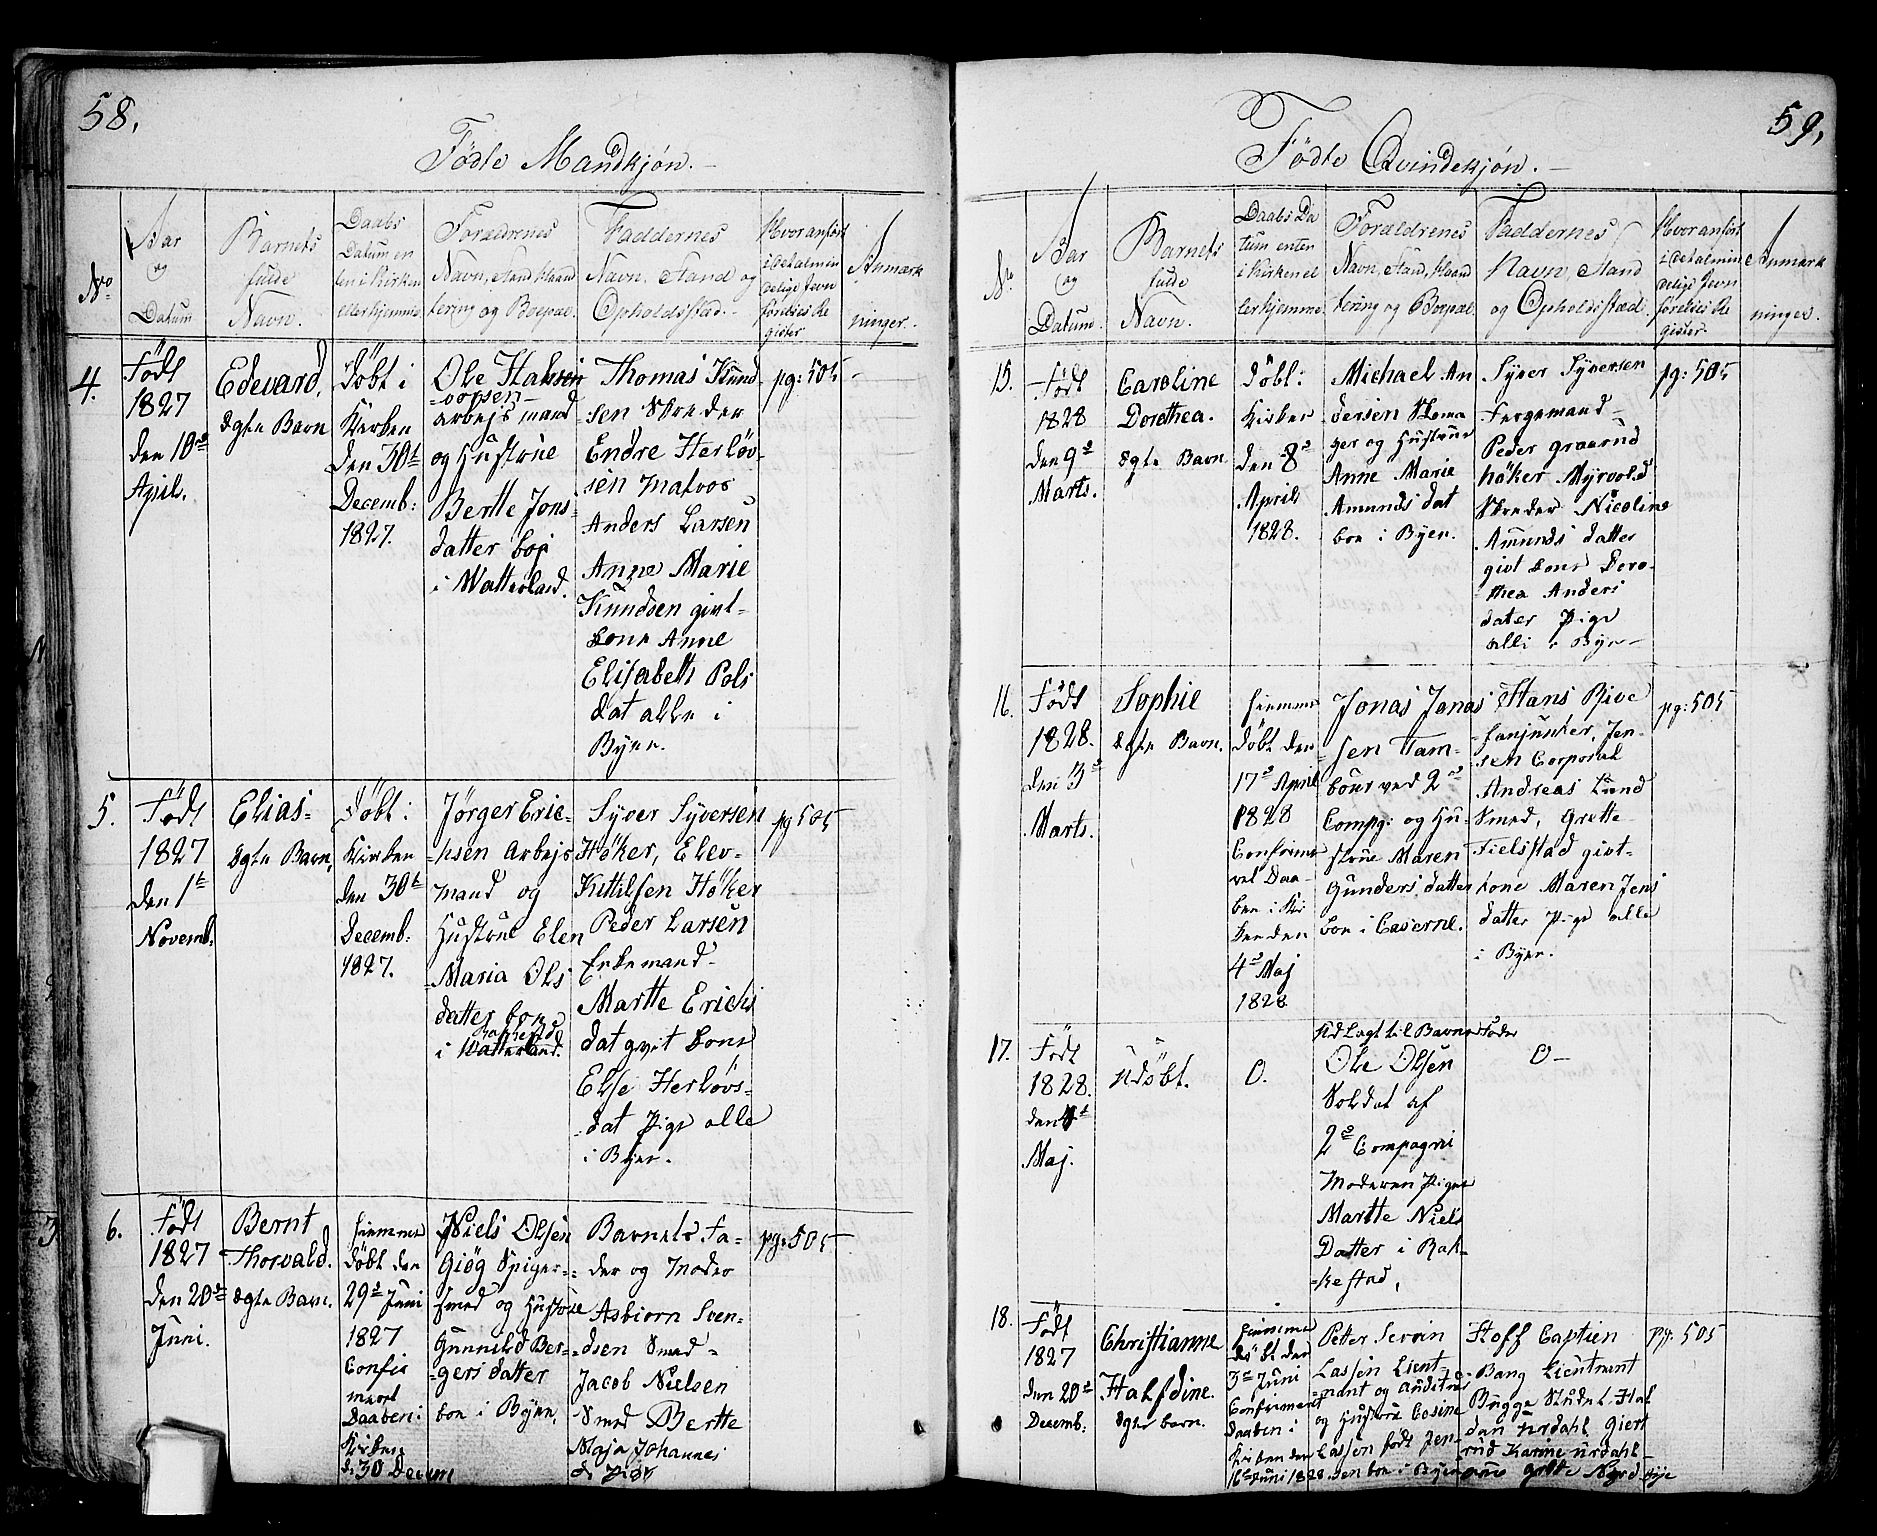 58.
Fødte Mandkjøn.
No
Aar
og
Datum
Barnets
fulde
Navn.
Daabs
Datum en
ten i Kirken
eller hjemme
Forældrenes
Navn, Stand, Haand
tering og Boepæl.
Faddernes
Navn, Stand og
Opholdsstæd.
Hvor anført
i det almin
delige Jevn
førelses Re
gister.
Anmærk
ninger.
4.
Født
1827
den 10de
April.
Edevard.
Ægte Barn
Døbt i
Kirken
den 30te
Decemb:
1827.
Ole Hansen
arbejs mand
og Hustrue
Berthe Jons
datter boe
i Watterland.
Thomas Knud
sen Skreder
Endre Herløv-
sen Matros
Anders Larsen
Anne Marie
Knudsen givt
Kone Anne
Elisabeth Pols
dat alle i
Byen.
pg: 505
5.
Født
1827
den 1te
Novemb.
Elias
Ægte Barn,
Døbt i
Kirken
den 30te
Decemb:
1827.
Jørger Eric-
ksen Arbejs
mand og
Hustrue Elen
Maria Ols
datter boe
i Watterland.
Syver Syversen
Høker, Elev
Kittilsen Høker
Peder Larsen
Enkemand
Marthe Erichs
dat givt Kone
Else Herløvs-
dat Pige alle
i Byen.
pg 505
6.
Født
1827
den 20de
Juni.
Bernt
Thorvald.
Ægte Barn.
hiemme
døbt den
29de Juni
1827
Confir
meret
Daaben i
Kirken
d: 30 Decem
Niels Olsen
Giøg Spiger-
smed og Hustrue
Gunnild Ber-
gers datter
boe i Byen,
Barnets Fa-
der og Moder
Asbiorn Sven-
dsen Smed
Jacob Nielsen
Smed Berthe
Maja Johannes
d: Pige
pg: 505
59,
Fødte Qvindekjøn.
No
Aar
og
Datum.
Barnets
fulde
Navn.
Daabs Da
tum enten
i Kirken el
ler hjemme
Forældrenes
Navn, Stand, Haand
tering og Boepæl
Faddernes
Navn, Stand
og Opholdsstæd
Hvor anført
i det almin
delige Jevn
førelses Re
gister.
Anmærk
ninger.
15.
Født
1828
den 9de
Marts.
Caroline
Dorothea.
Ægte Barn
Døbt i
Kirken
den 8de
April
1828.
Michael An
dersen Skoma
ger og Hustrue
Anne Marie
Amunds dat
boe i Byen.
Syver Syversen
Fergemand
Peder Graarud
høker Myrvold
Skreder Nicoline
Amunds datter
givt Kone Doro-
thea Anders
dater Pige
alle i Byen
pg: 505
16.
Født
1828.
den 3de
Marts.
Sophie
Ægte Barn.
hiemme
døbt den
17de April
1828
Confirme
ret Daa-
ben i Kir
ken den
4de Maj
1828
Jonas Jonas
sen Tam-
bour ved 2det
Compg: og Hu-
strue Maren
Gunders datter
boe i Caserne.
Hans Bive
fanjunker, Jen-
sen Corporal
Andreas Lund
Smed, Grethe
Fielstad givt-
kone Maren Jens
datter Pige alle
i Byen.
pg: 505
17.
Født
1828.
den 4de
Maj.
Udøbt.
O.
Udlagt til Barnefader
Ole Olsen
Soldat af
2de Compagni
Moderen Pigen
Marthe Niels
Datter i Bak-
kestad,
O
18.
Født
1827
den 20de
Decemb:
Christianne
Halfdine.
Ægte barn.
hiemme
døbt den
3de Juni
Confirmeret
daaben i
Kirken den
16de Juni 1828
Petter Severin
Lassen Lieut-
nant og Auditeur
og Hustrue Cosine
Lassen født Jen-
sen boe i Byen
Hoff Captien
Bang Lieutnant
Bugge Student Hal
dan Urdahl Giert
rud Karine Urdahl
pg. 505